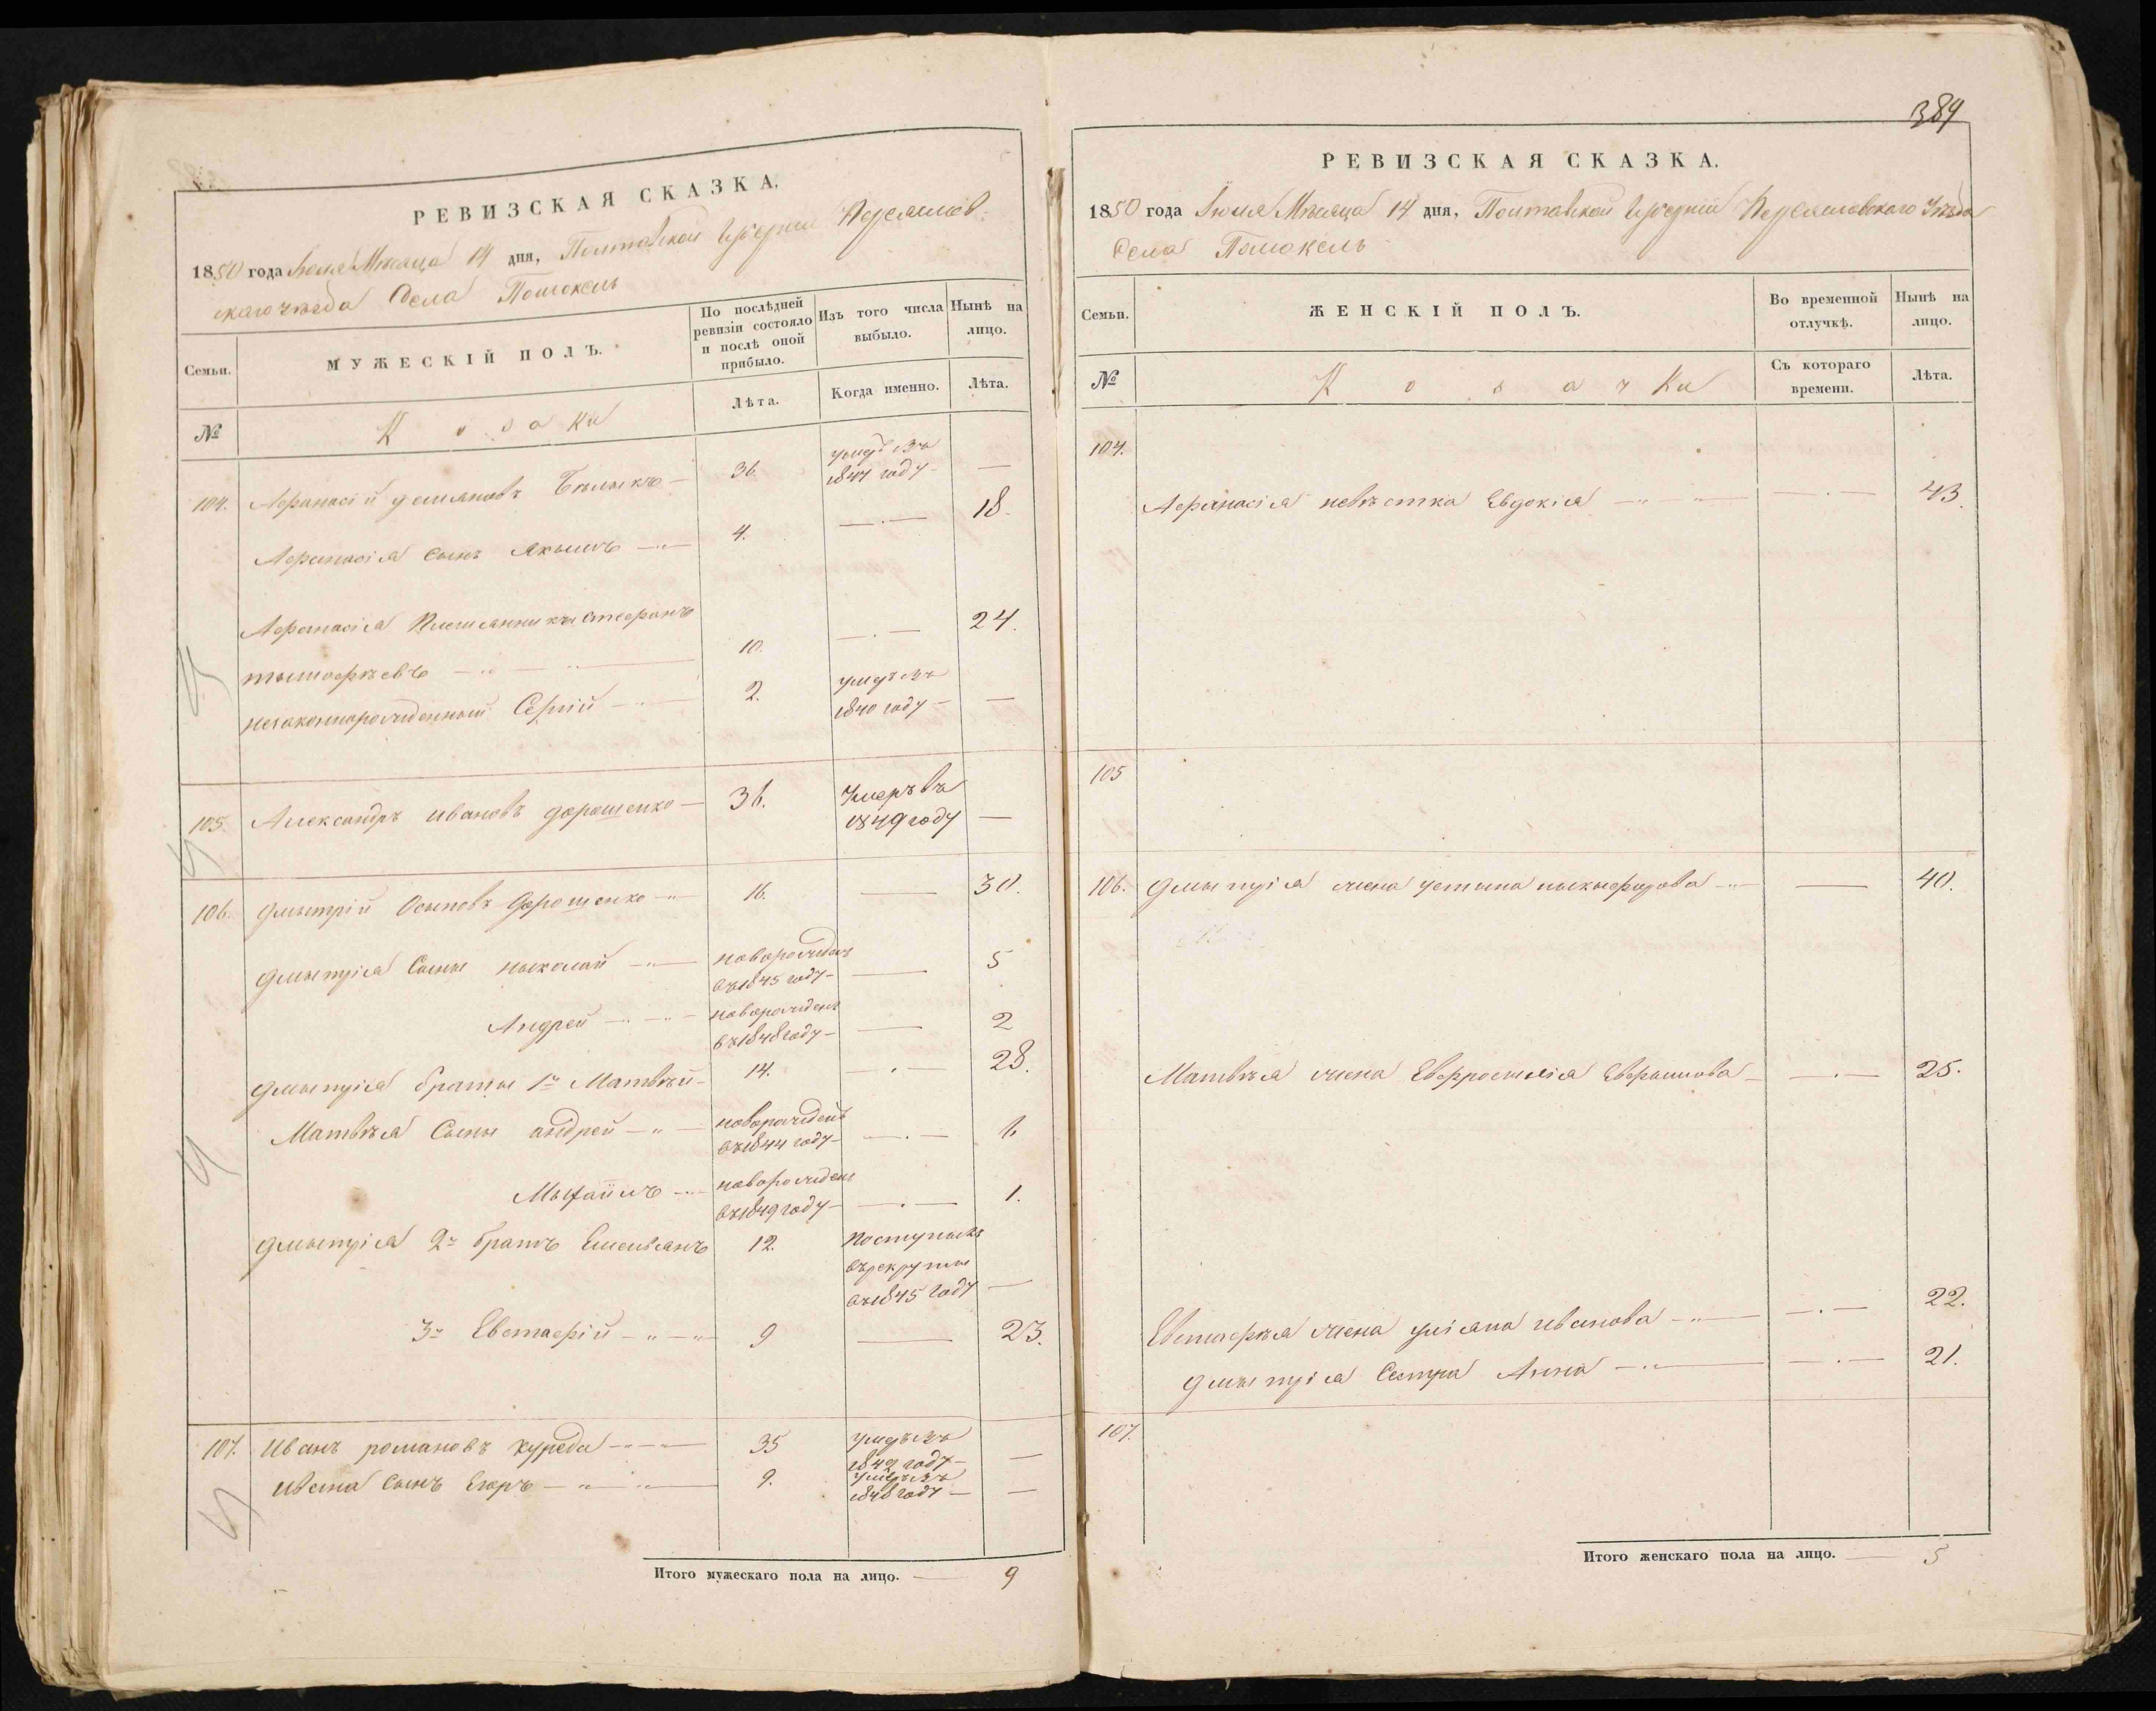 РЕВИЗСКАЯ СКАЗКА.
1850 года Іюля Мѣсяца 14 дня, Полтавской Губерніи Переяслов-
скаго уѣзда Села Помокель
Семьи.
МУЖЕСКІЙ ПОЛЪ.
По послѣдней ревизіи состояло и послѣ оной прибыло.
Изъ того числа выбыло.
Нынѣ на лицо.
№
Козаки
Лѣта.
Когда именно.
Лѣта.
104. Афанасій демяновъ Бѣлыкъ 36. умеръ въ 1847 году —
Афанасія сынъ Якымъ 4. — 18.
Афанасія Племянникъ Стефанъ
тымофѣевъ 10. — 24.
незаконнорожденный Сергій 2. умеръ въ 1840 году —
105. Александръ ивановъ дорошенко 36. Умеръ въ 1849 году —
106. Дмытрій Осыповъ Дорошенко 16. — 30.
Дмытрія Сыны ныколай новорожденъ въ 1845 году — 5
Андрей новорожденъ въ 1848 году — 2
Дмытрія братья 1й Матвѣй 14. — 28.
Матвѣя Сыны андрей новорожденъ въ 1844 году — 6
Мыхаилъ новорожденъ въ 1849 году — 1.
Дмытрія 2й братъ Емельянъ 12. поступилъ въ рекруты въ 1845 году —
3й Евстафій 9 — 23.
107. Иванъ романовъ курѣда 35 умеръ въ 1849 году —
ивана сынъ Егоръ 9. умеръ въ 1848 году —
Итого мужескаго пола на лицо. — 9
389
РЕВИЗСКАЯ СКАЗКА.
1850 года Іюля Мѣсяца 14 дня, Полтавской Губерніи Переясловскаго Уѣзда
Села Помокель
Семьи.
ЖЕНСКІЙ ПОЛЪ.
Во временной отлучкѣ.
Нынѣ на лицо.
№
Козачки
Съ котораго времени.
Лѣта.
104.
Афанасія невѣстка Евдокія — 43.
105
106. Дмытрія жена устына ныкыфорова — 40.
Матвѣя жена Евфросинія Ефымова — 25.
Евстафѣя жена уліяна иванова — 22.
Дмытрія Сестра Анна — 21.
107.
Итого женскаго пола на лицо. — 5